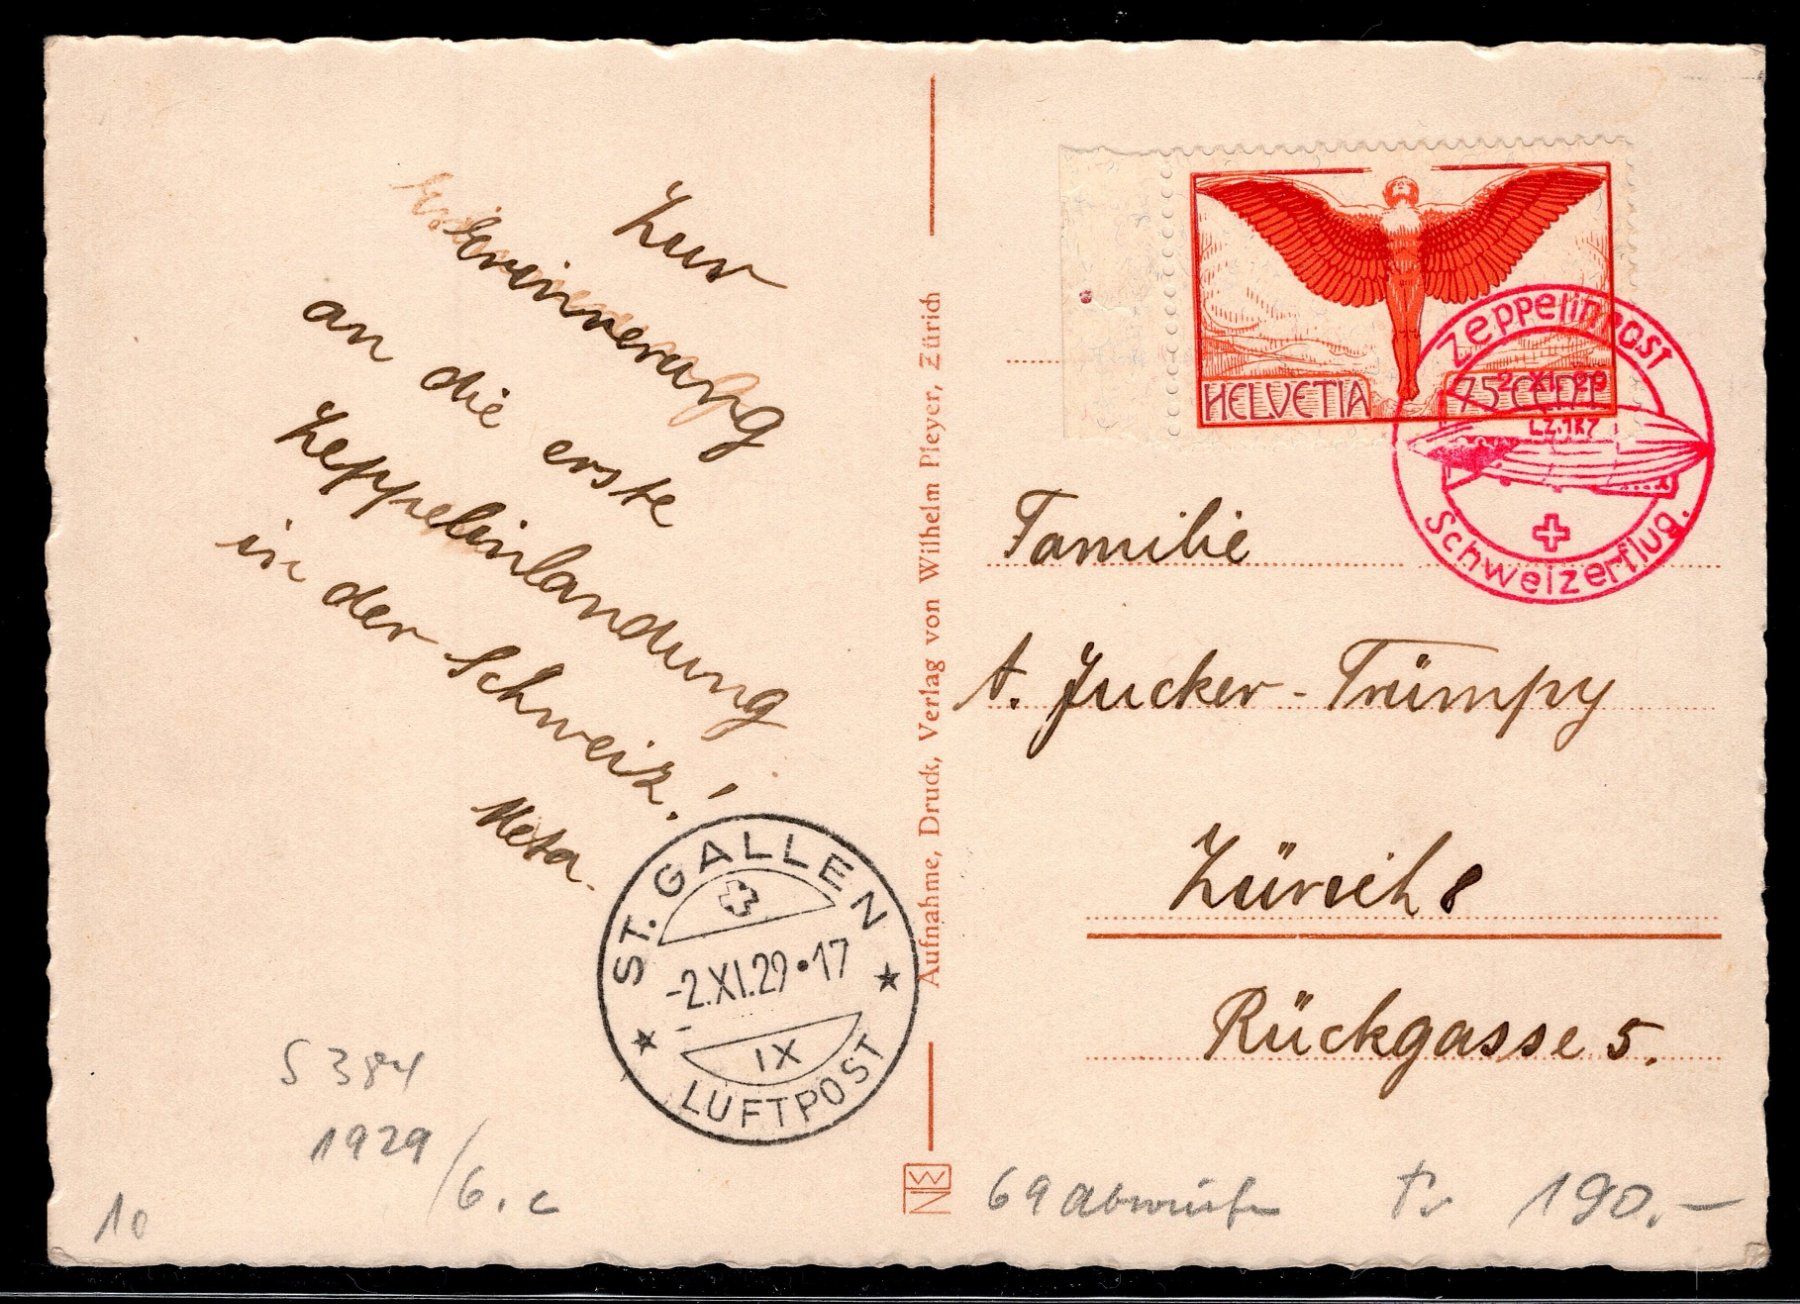 Zur
Erinnerung
an die erste
Zeppelinlandung
in der Schweiz!
Meta.
ST. GALLEN
-2.XI.29•17
IX
LUFTPOST
S 384
1929/6.c
10
Aufnahme, Druck, Verlag von Wilhelm Pleyer, Zürich
HELVETIA
75 CENT.
Zeppelinpost
2. XI. 29
LZ.127
Schweizerflug.
Familie
A. Jucker-Trümpy
Zürich 8
Rückgasse 5.
69 Abwürfe Fr 190.-